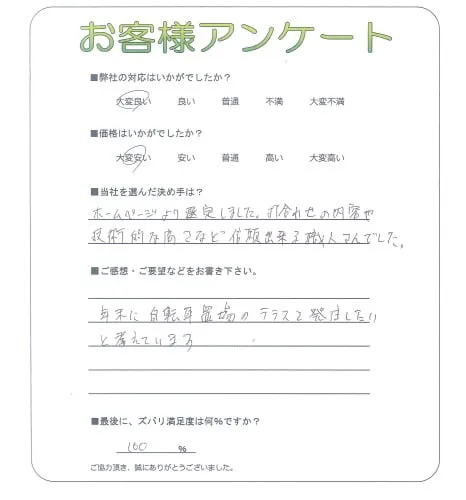 お客様アンケート
■弊社の対応はいかがでしたか？
大変良い 良い 普通 不満 大変不満
■価格はいかがでしたか？
大変安い 安い 普通 高い 大変高い
■当社を選んだ決め手は？
ホームページより選定しました。打合わせの内容や
技術的な高さなど信頼出来る職人さんでした。
■ご感想・ご要望などをお書き下さい。
年末に自転車置場のテラスを発注したい
と考えています
■最後に、ズバリ満足度は何％ですか？
100 ％
ご協力頂き、誠にありがとうございました。